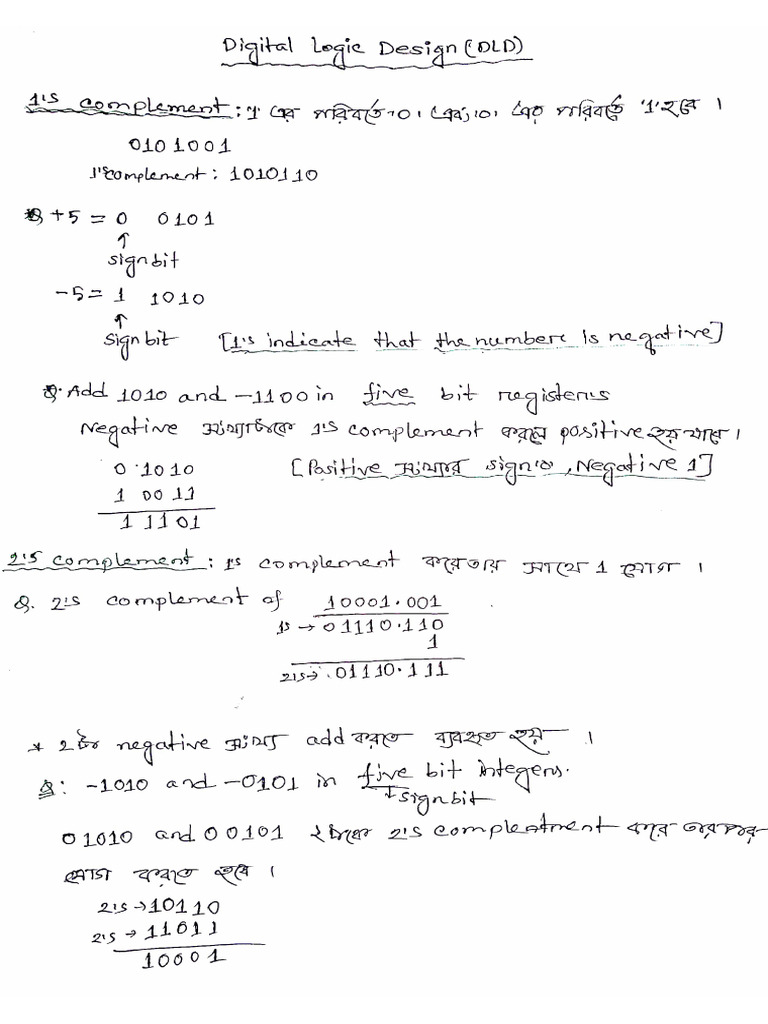 Digital Logic Design (DLD)
1's complement: '1' এর পরিবর্তে '0' এবং '0' এর পরিবর্তে '1' হবে।
0101001
1's complement: 1010110
+5 = 0 0101
↑
sign bit
-5 = 1 1010
↑
sign bit [1's indicate that the number is negative]
Q. Add 1010 and -1100 in five bit registers
Negative সংখ্যাটাকে 1's complement করলে positive হয়ে যাবে।
0 1010 [Positive সংখ্যার sign 0, Negative 1]
1 0011
1 1101
2's complement: 1's complement করে তার সাথে 1 যোগ।
Q. 2's complement of 10001.001
1s → 01110.110
1
2's → 01110.111
* 2টি negative সংখ্যা add করতে ব্যবহৃত হয়।
Q: -1010 and -0101 in five bit integers.
↓ sign bit
01010 and 00101 2's complement করে তারপর
যোগ করতে হবে।
2's → 10110
2's → 11011
10001